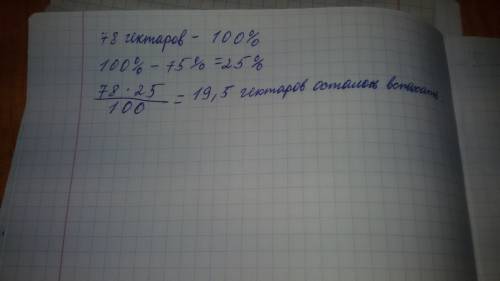 78 гектаров - 100%
100% - 75% = 25%
78 · 25
100
= 19,5 гектаров осталось вспахать